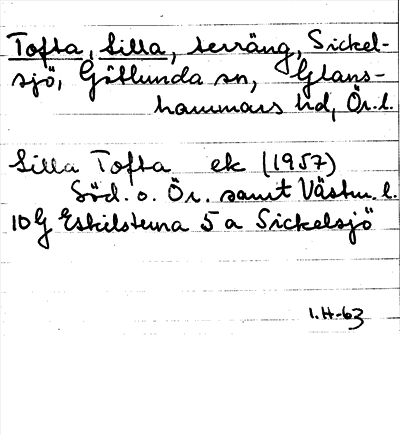 Tofta, Lilla, terräng, Sickel-
sjö, Götlunda sn, Glans-
hammars hd, Ör.l.
Lilla Tofta ek (1957)
Söd. o. Ör. samt Västm. l.
10G Eskilstuna 5a Sickelsjö
I.H-63